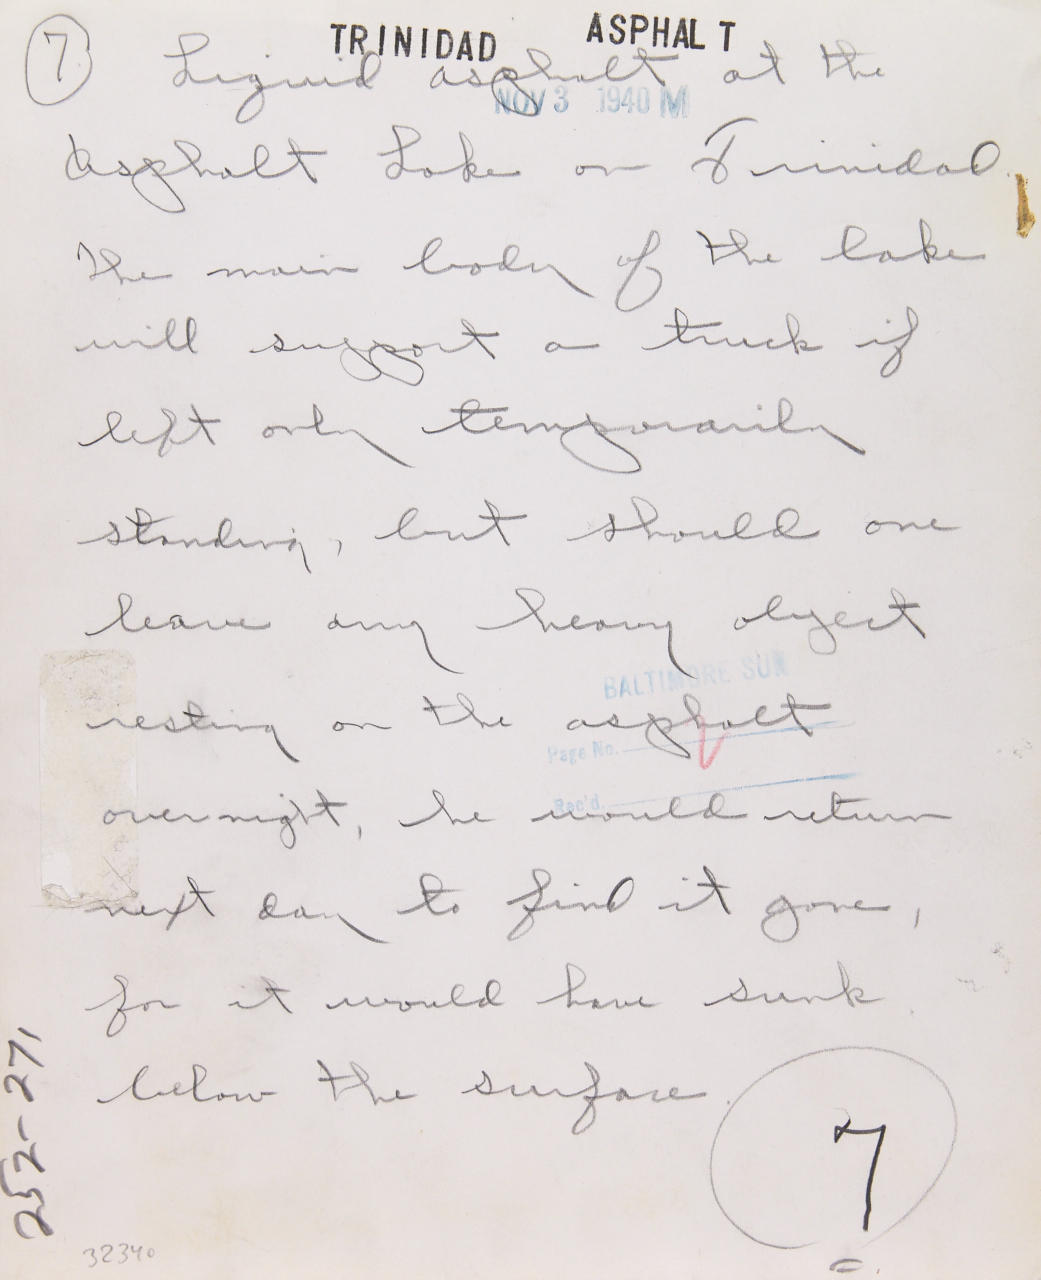 TRINIDAD ASPHALT
7 Liquid asphalt at the
NOV 3 1940 M
Asphalt Lake on Trinidad.
The main body of the lake
will support a truck if
left only temporarily
standing, but should one
leave any heavy object
BALTIMORE SUN
resting on the asphalt
Page No.
Rec'd.
overnight, he would return
next day to find it gone,
for it would have sunk
below the surface.
7
252-271
32340